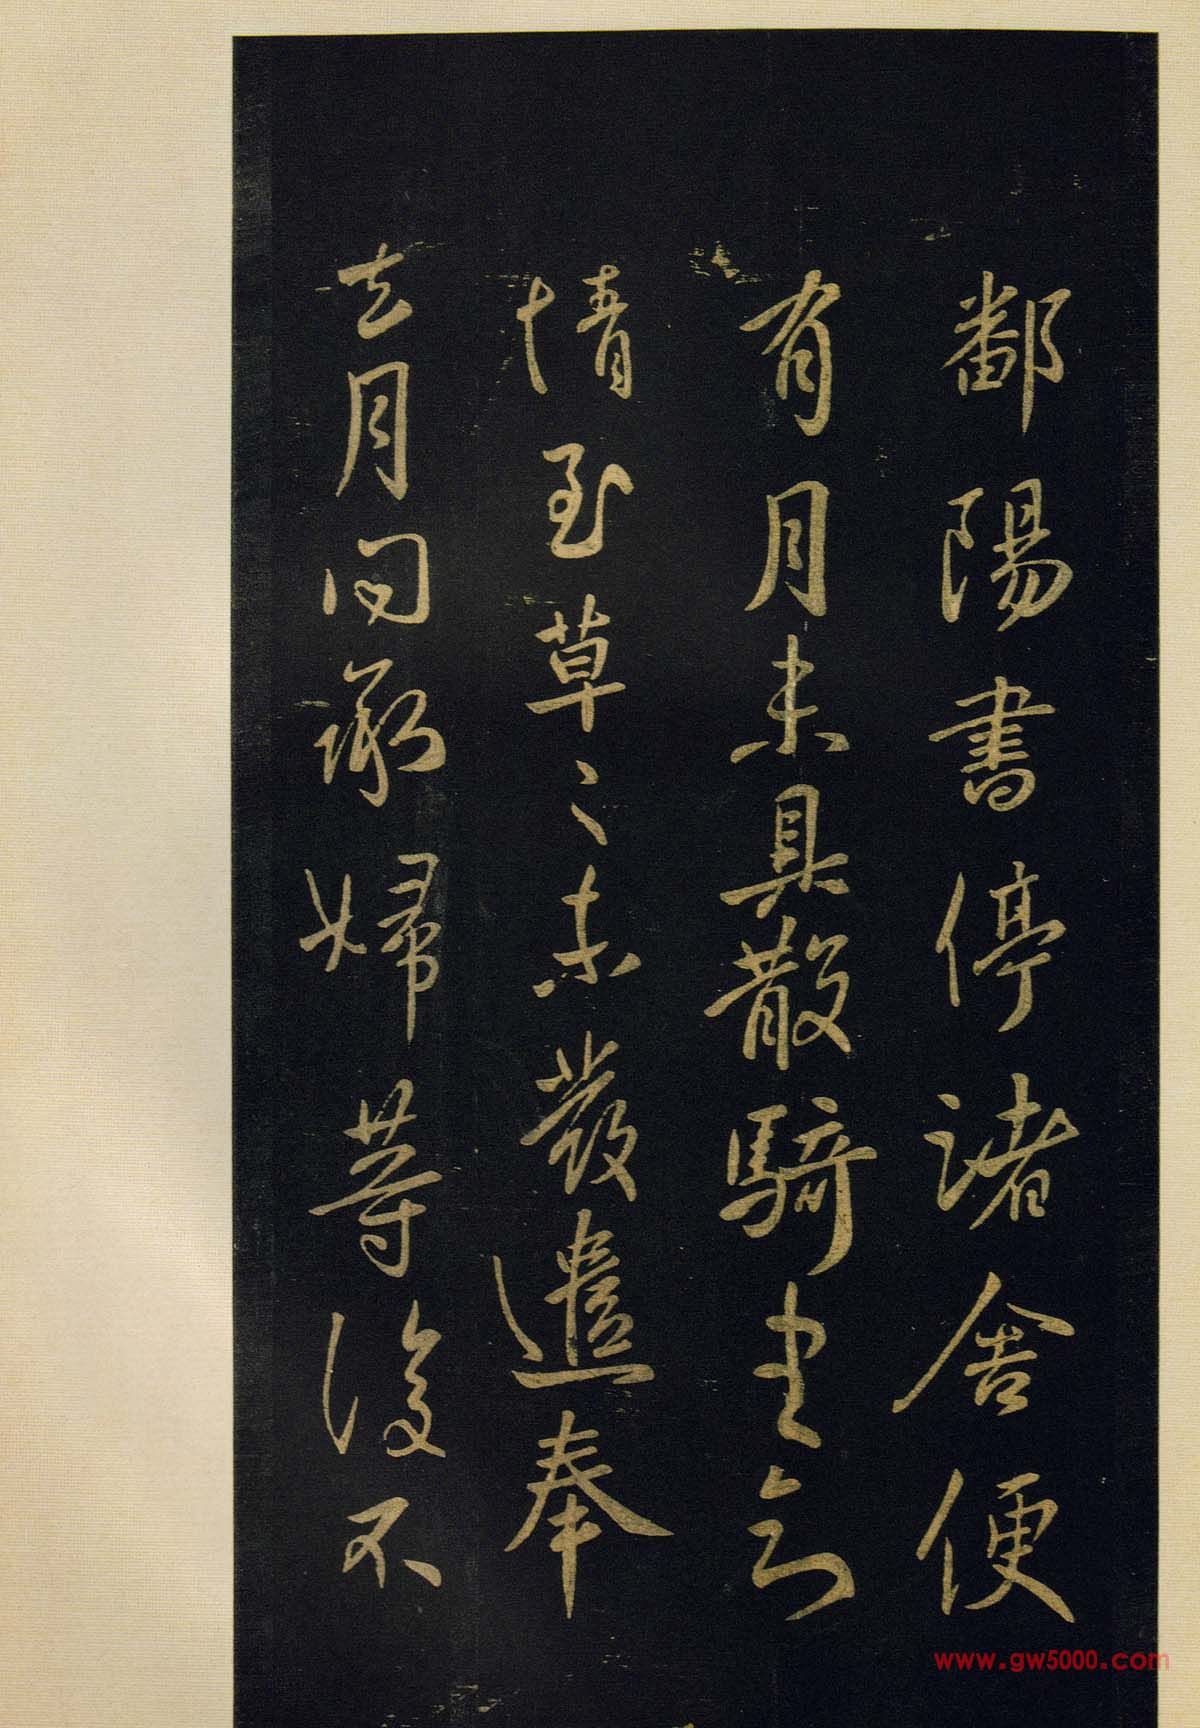 鄱陽書停諸舍便
有月未具散騎書問
情至草〻未發遣奉
去月問承婦等復不
www.gw5000.com